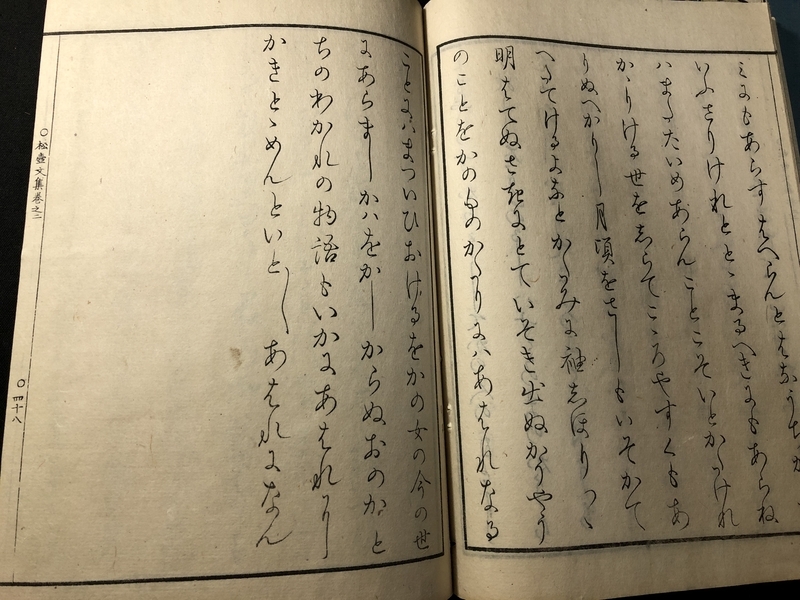 ミにもあらすはへらんとはなうちか
いふさりけれとゝまるへきにもあらね
ハまたたいめあらんことこそいとかたけれ
かゝりける世をしらてこゝろやすくもあ
りぬへかりし月頃をさしもいそかて
へたてけるよなとかたみに袖しほりつゝ
明はてぬさきにとていそき出ぬかうやう
のことをかの
かたりにハあはれなる
ことにハまついひおけるをかの女の今の世
にあらましかハをかしからぬおのかと
ちのわかれの物語もいかにあはれに
かきとゝめんといとしあはれになん
○松壺文集巻之二
○四十八